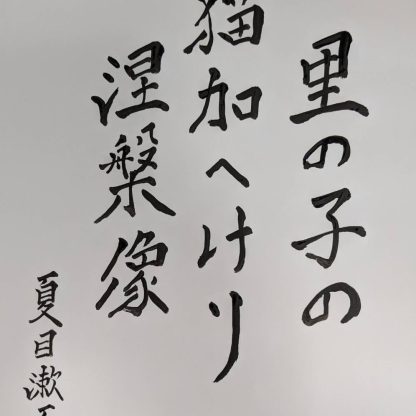 里の子の
猫加へけり
涅槃像
夏目漱